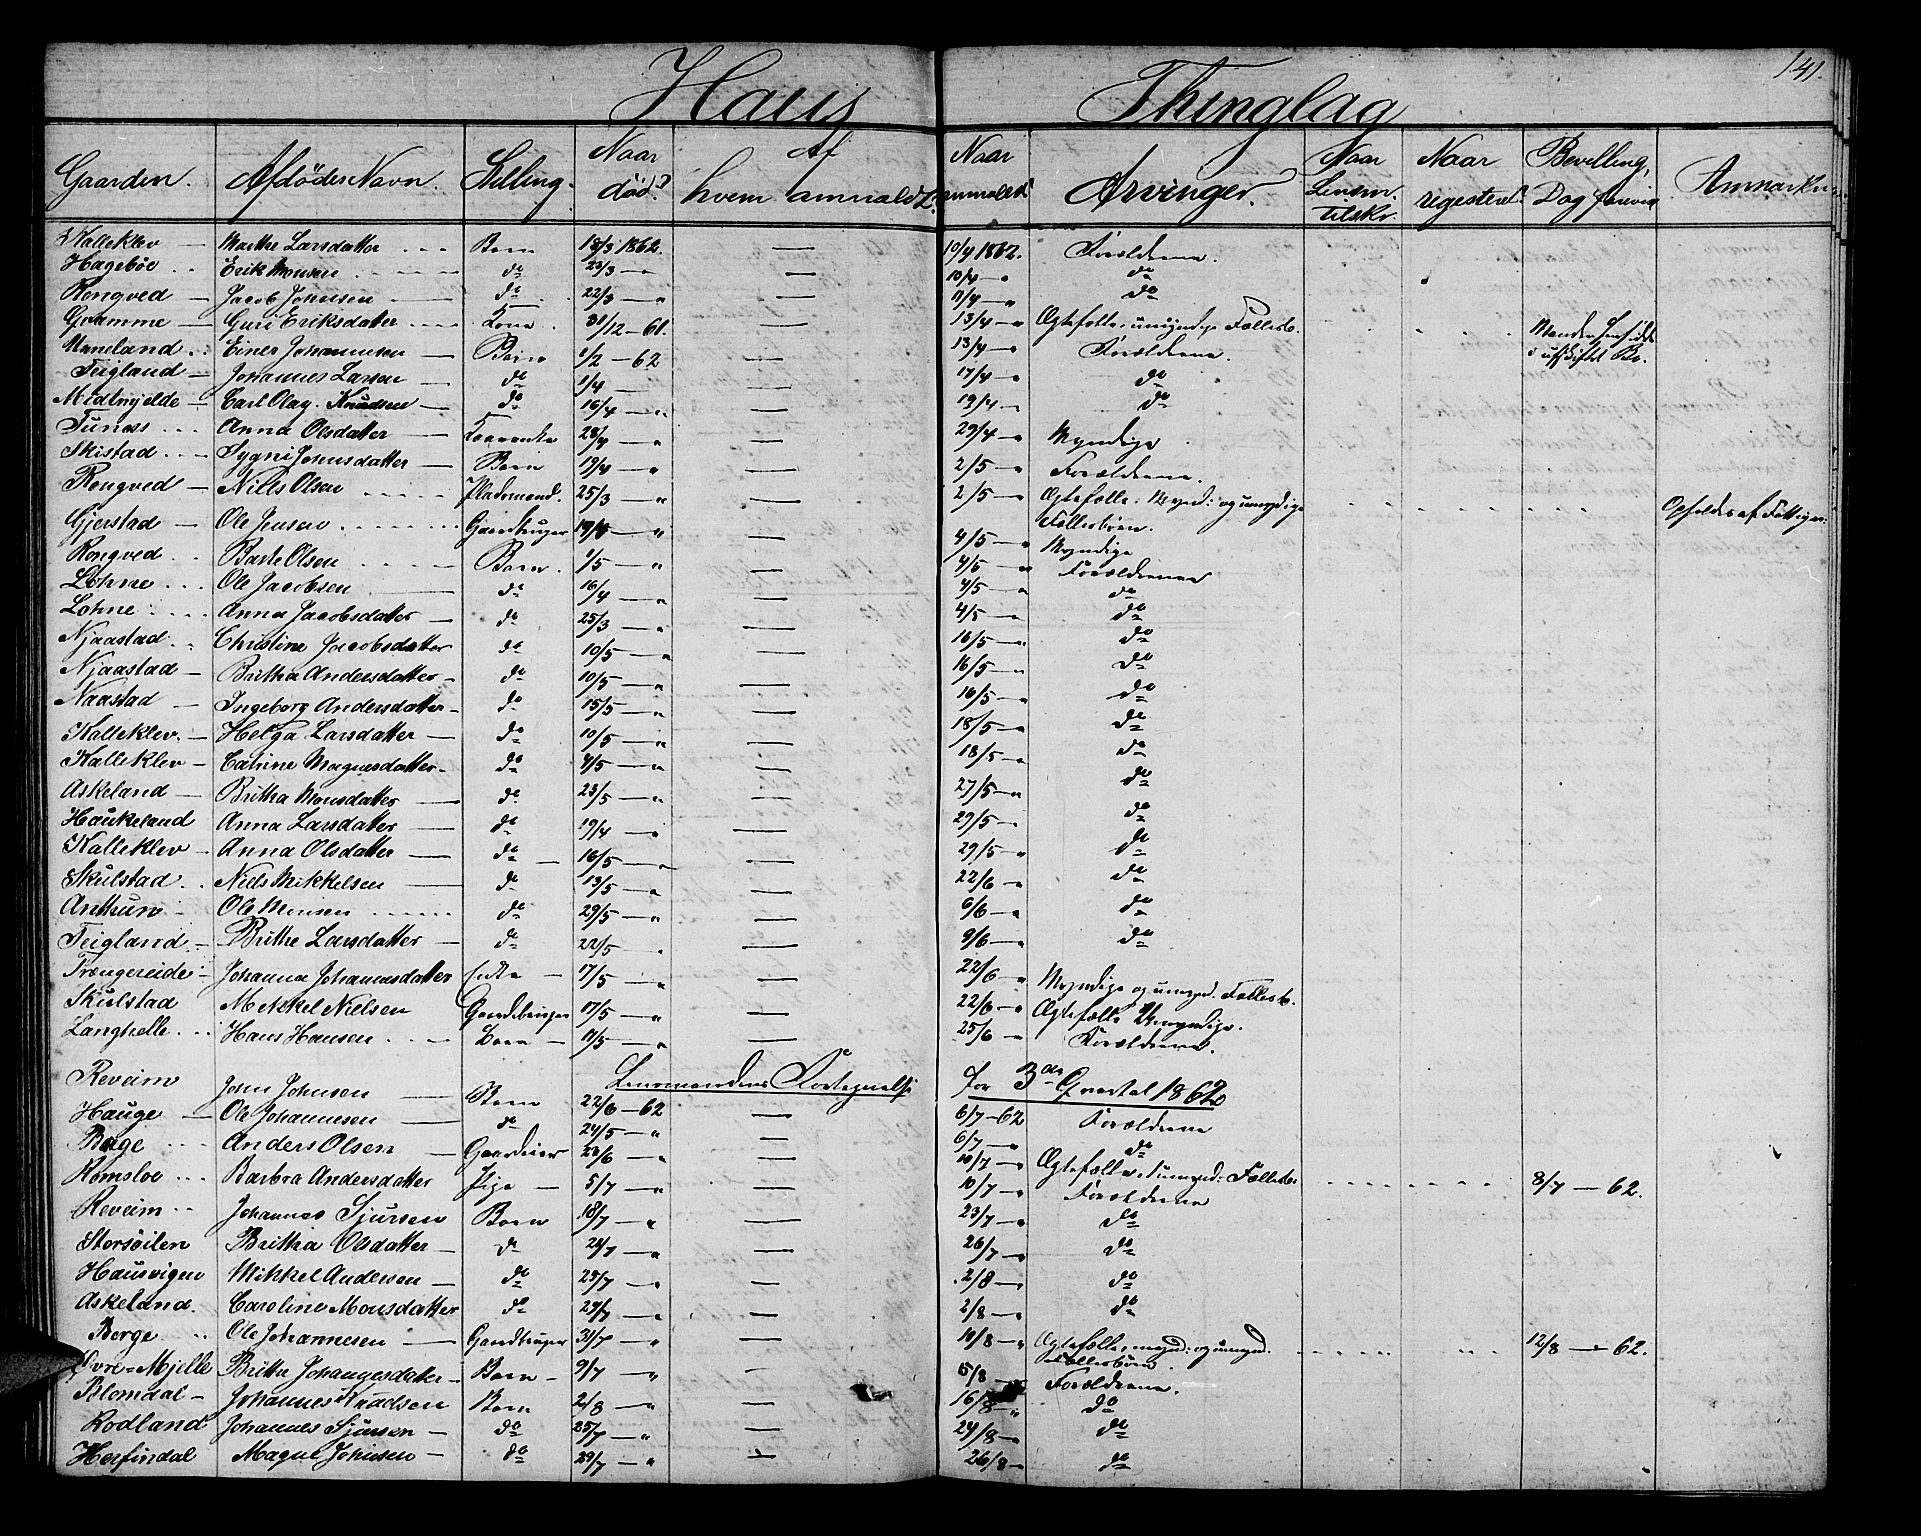 141.
Haus Thinglag
Gaarden. Afdødes Navn. Stilling. Naar død? Af hvem anmeldt? Naar anmeldt? Arvinger. Naar Lensm. tilskr. Naar registeret Bevilling, Dag forevis Anmærkn
Kalleklev — Marthe Larsdatter Barn 18/3 1862. — 10/4 1862. Forældrene.
Hagebøe Erik Monsen do 23/3 — — 10/4 — " do
Rongved — Jacob Johnsen — do 22/3 — " — 11/4 — " do
Gramme — Guri Eriksdatter Kone 31/12 — 61. — 13/4 — " Ægtefælle, umyndige Fællesb. Manden hensidd i uskiftet Bo.
Unneland Einer Johannesen — Barn 1/2 — 62 — 13/4 — " Forældrene.
Teigland — Johannes Larsen — do 1/4 — — 17/4 — " do
Midtmjelde — Carl Olag. Knudsen — do 16/4 — " — 19/4 — do
Tunæs Anna Olsdatter — 28/4 — " — 29/4 — " Myndige
Skistad Sygni Johnsdatter — Barn 19/4 — " — 2/5 — " Forældrene
Rongved — Nills Olsen Pladsmand. 25/3 — " — 2/5 — " Ægtefælle, Mynd: og umyndige Fællesbörn. Opholdes af Fattigv.
Gjerstad — Ole Jensen Gaardbruger 19/4 — " — 4/5 — " Myndige
Rongved Barte Olsen Barn 1/5 — " — 4/5 — " Forældrene
Lohne Ole Jacobsen do 16/4 — " — 4/5 — " do
Lohne Anna Jacobsdatter — do 25/3 — " — 4/5 — " do
Njaastad Christine Jacobsdatter do 10/5 — " — 16/5 — " do
Njaastad — Brittha Andersdatter — do 10/5 — " — 16/5 — " do
Naastad — Ingeborg Andersdatter — do 15/5 — " — 16/5 — " do
Kalleklev — Helga Larsdatter — do 10/5 — " — 18/5 — " do
Kalleklev — Carine Magnesdatter — do 4/5 — " — 18/5 — " do
Askeland — Brittha Monsdatter — do 23/5 — " — 27/5 — " do
Haukeland Anna Larsdatter — do 19/4 — " — 29/5 — " do
Kalleklev — Anna Olsdatter — do — 16/5 — " — 29/5 — " do
Skulstad Niels Mikkelsen — do 13/5 — " — 22/6 — " do
Anthun Ole Monsen do 29/5 — " — 6/6 — " do
Teigland — Brithe Larsdatter — do 22/5 — " — 9/6 — " do
Trængereide — Johanna Johannesdatter Enke — 17/5 — " — 22/6 — " Myndige og umynd. Fællesb.
Skulstad Mikkel Nielsen Gaardbruger 17/5 — " — 22/6 — " Ægtefælle Umyndige.
Langhelle Hans Hansen Barn — 11/5 — " — 25/6 — " Forældrene.
Lensmandens Fortegnelse for 3de Qvartal 1862
Reveim John Johnsen — Barn 22/6 — 62 — 6/7 — 62 Forældrene
Hauge — Ole Johannesen — do 24/5 — " — 6/7 — " do
Bage Anders Olsen — Gaardeier 22/6 — " — 10/7 — " Ægtefælle, umynd: Fællesb. 8/7 — 62.
Romsloe Barbra Andersdatter Pige — 5/7 — " — 10/7 — " Forældrene
Reveim Johannes Sjursen Barn 18/7 — " — 23/7 — " do
Storsøilen Brittha Olsdatter — do 24/7 — " — 26/7 — " do
Hausvigen Mikkel Andersen — do 25/7 — " — 2/8 — " do
Askeland. Caroline Monsdatter do 29/7 — " — 2/8 — " do
Borge Ole Johannesen — Gaardbruger 31/7 — " — 10/8 — " Ægtefælle, mynd: og umynd. Fællesbörn. 12/8 — 62.
Øvre-Mjelle Britha Johannesdatter — Barn — 9/7 — " — 5/8 — Forældrene.
Blomdal — Johannes Knudsen Barn 2/8 — " — 16/8 — " do
Rodland Johannes Sjursen — do 25/7 — " — 24/8 — " do
Herfindal Magne Johnsen — do 29/7 — " — 26/8 — do